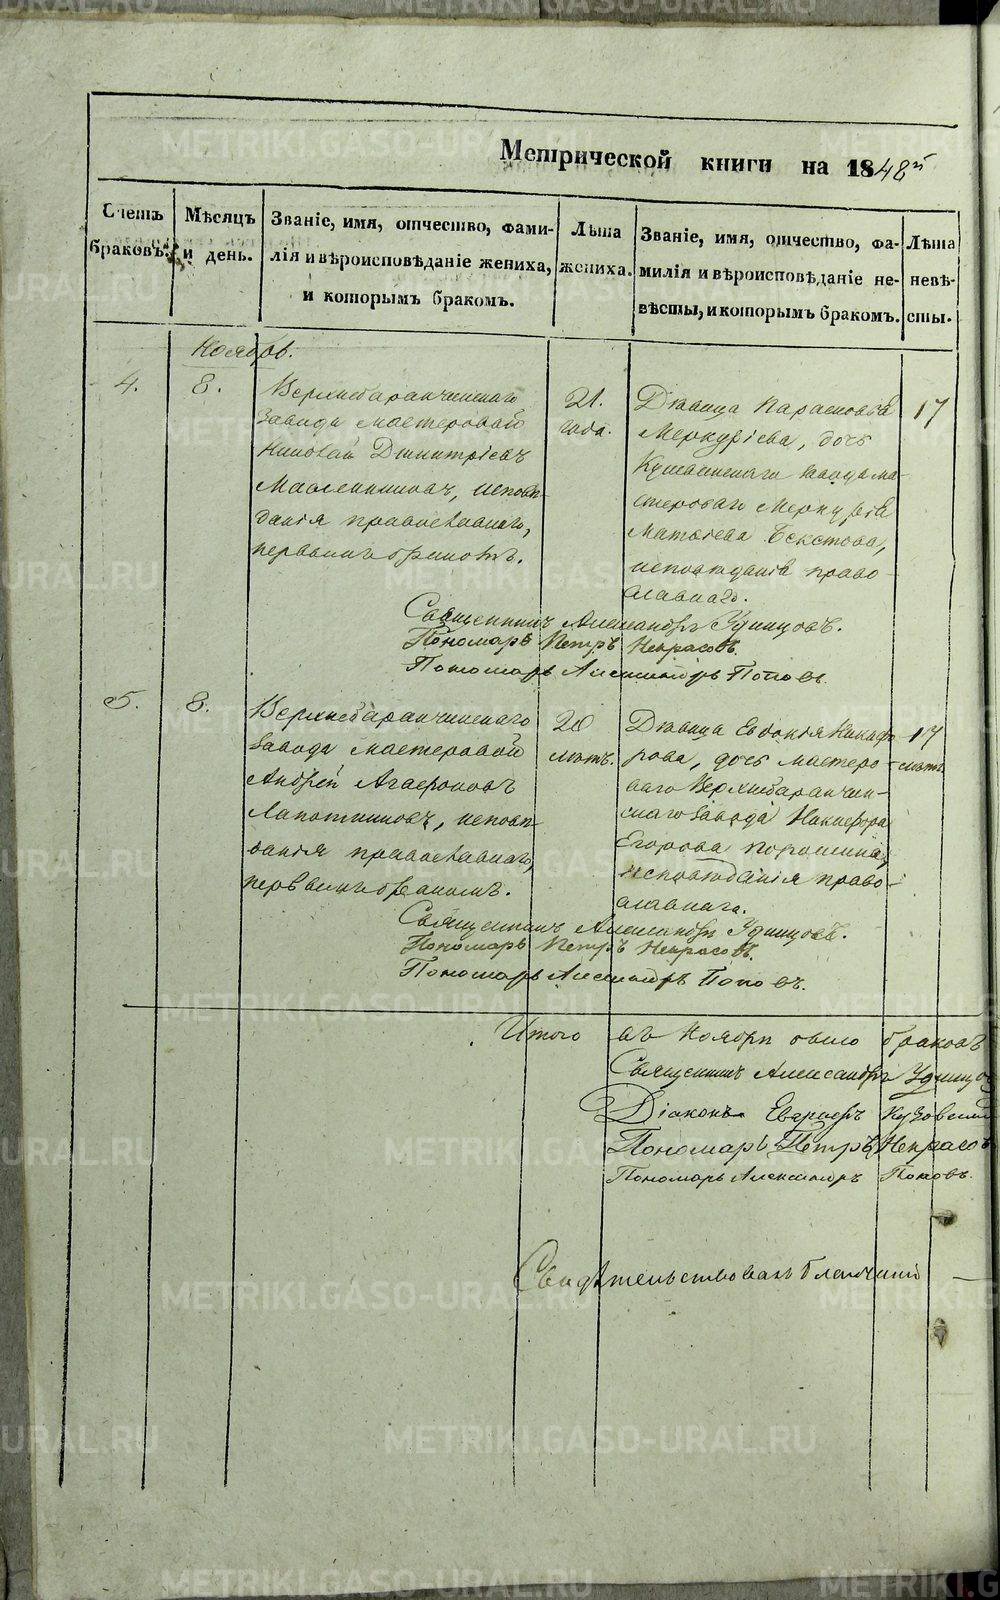 Метрической книги на 1848й
Счетъ браковъ.
Мѣсяцъ и день.
Званіе, имя, отчество, фами-
лія и вѣроисповѣданіе жениха,
и которымъ бракомъ.
Лѣта
жениха.
Званіе, имя, отчество, фа-
милія и вѣроисповѣданіе не-
вѣсты, и которымъ бракомъ.
Лѣта
невѣ-
сты.
Ноябрь.
4.
8.
Верхнебаранчинскаго
завода мастеровой
Николай Димитріевъ
Масленниковъ, исповѣ-
данія православнаго,
первымъ бракомъ.
21.
года.
Дѣвица Параскова
Меркуріева, дочь
Кушвинскаго завода ма-
стероваго Меркурія
Матвѣева Бекетова,
исповѣданія право-
славнаго.
17
Священникъ Александръ Удинцовъ.
Пономарь Петръ Некрасовъ.
Пономарь Александръ Поповъ.
5.
8.
Верхнебаранчинскаго
завода мастеровой
Андрей Агафоновъ
Лапотниковъ, исповѣ-
данія православнаго,
первымъ бракомъ.
20
лѣтъ.
Дѣвица Евдокія Никифо-
рова, дочь мастеро-
ваго Верхнебаранчин-
скаго завода Никифора
Егорова Порошина,
исповѣданія право-
славнаго.
17
лѣтъ
Священникъ Александръ Удинцовъ.
Пономарь Петръ Некрасовъ.
Пономарь Александръ Поповъ.
Итого въ Ноябрѣ было браковъ
Священникъ Александръ Удинцов
Діаконъ Кузовскій
Пономарь Петръ Некрасовъ
Пономарь Александръ Поповъ.
Свидѣтельствовалъ Благочинный
METRIKI.GASO-URAL.RU